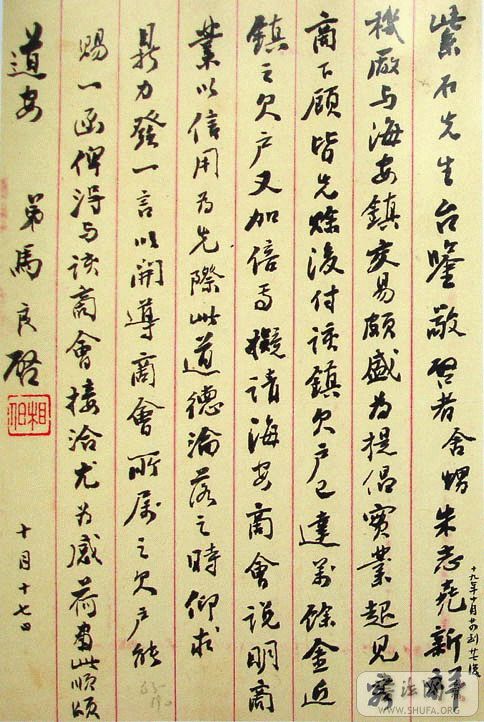 紫石先生台鑒敬啓者舍甥朱志堯新
機廠与海安鎮交易頗盛為提倡實業起見
商下顧皆先賖後付該鎮欠户已達萬餘金近
鎮之欠户又加倍焉擬請海安商會說明商
業以信用為先際此道德淪落之時仰求
鼎力發一言以開導商會所属之欠户能
賜一函俾淂与該商會接洽尤為感荷耑此順頌
道安 弟馬良啓
相伯
十月十七日
WWW.SHUFA.ORG